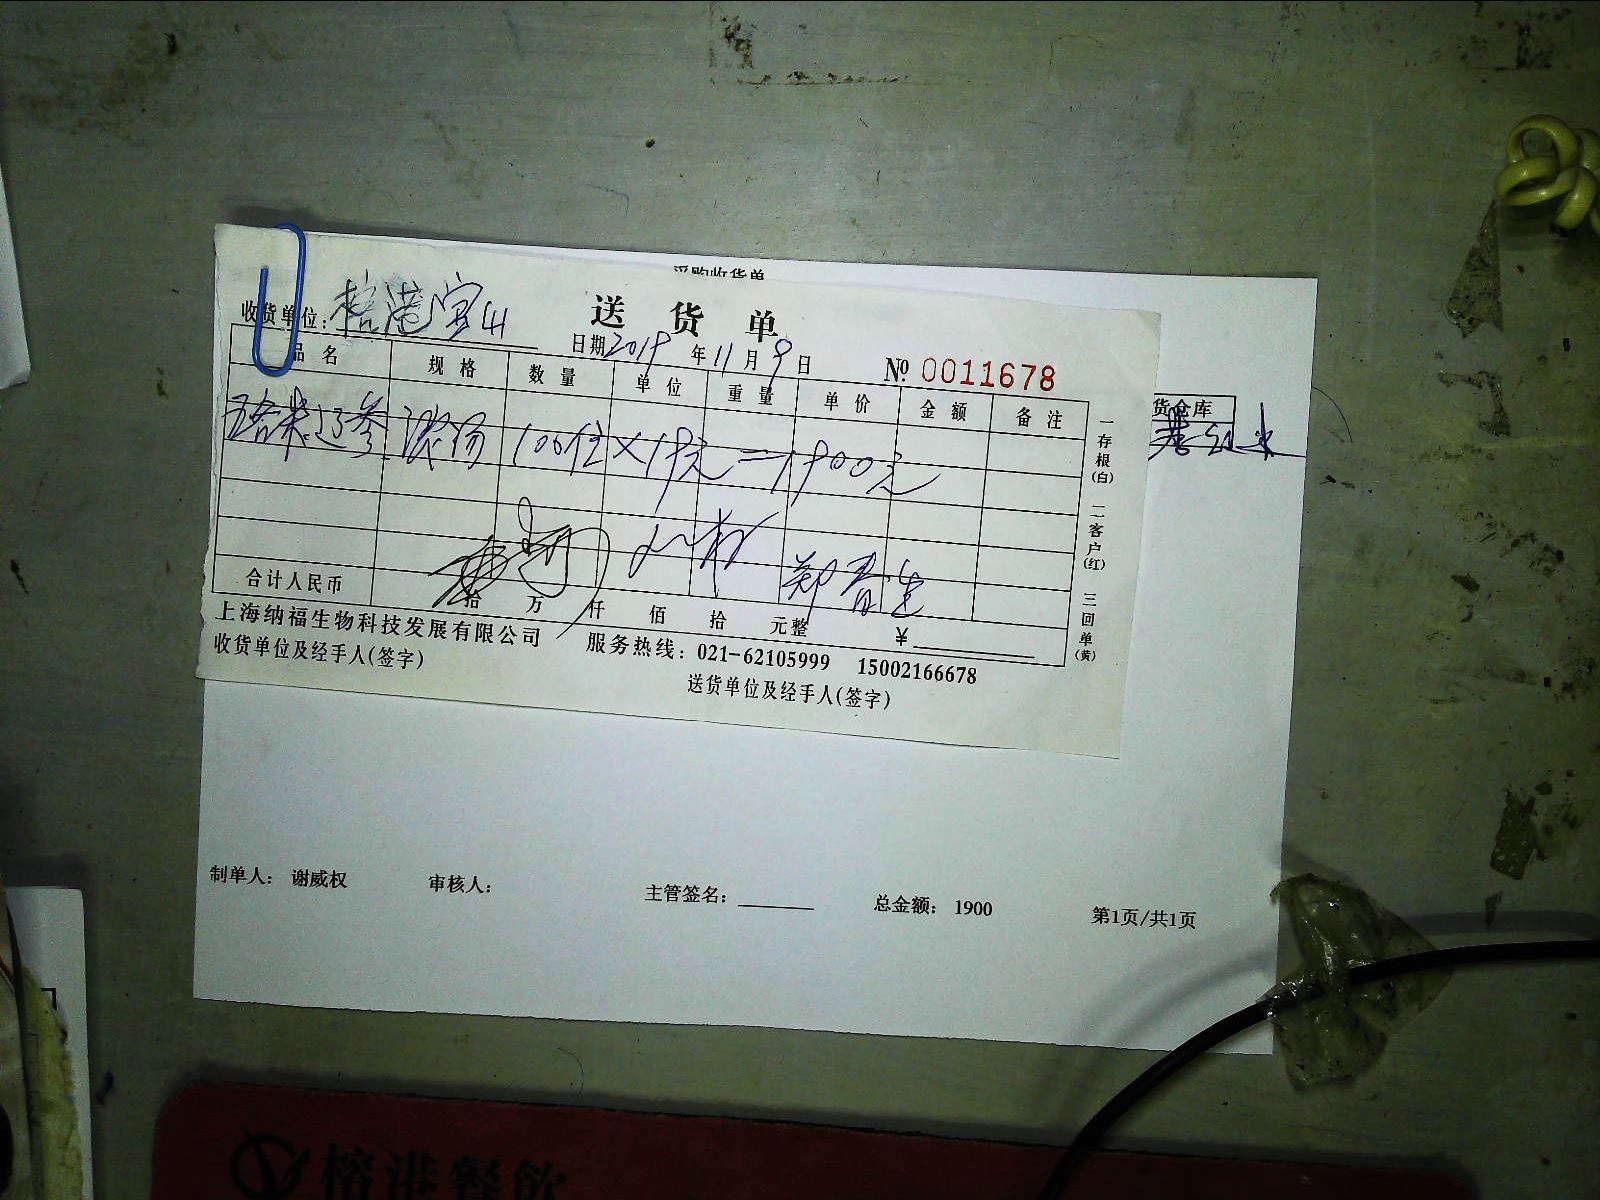 采购收货单
送货单
收货单位：榕港宝山
日期2019年11月9日
№ 0011678
品名 规格 数量 单位 重量 单价 金额 备注
货仓库
谷米辽参 浓汤 100位×19元=1900元
郑春生
合计人民币 拾 万 仟 佰 拾 元整 ¥
上海纳福生物科技发展有限公司 服务热线：021-62105999 15002166678
收货单位及经手人(签字) 送货单位及经手人(签字)
一存根(白) 二客户(红) 三回单(黄)
制单人： 谢威权 审核人： 主管签名： 总金额： 1900 第1页/共1页
榕港餐飲